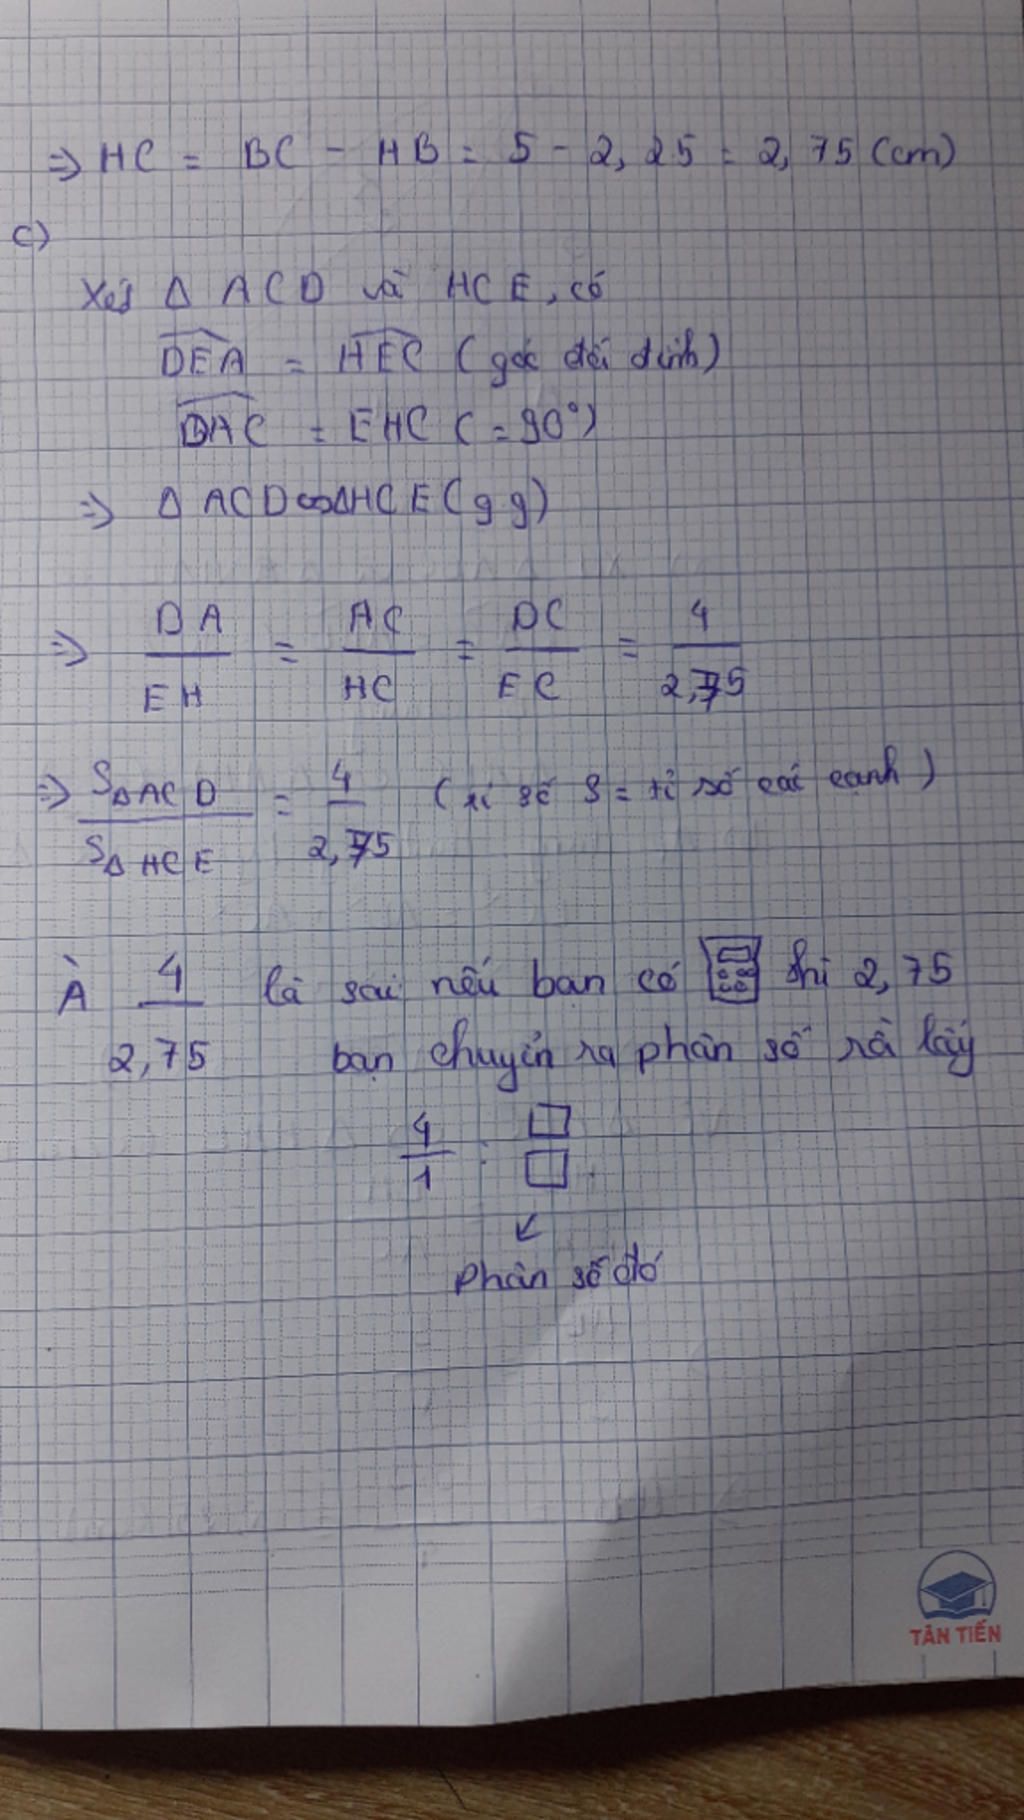 => HC = BC - HB = 5 - 2,25 = 2,75 (cm)
c)
Xét Δ ACD và HCE, có
DEA = HEC (góc đối đỉnh)
DAC = EHC (= 90°)
=> Δ ACD ∽ ΔHCE (g g)
=> DA/EH = AC/HC = DC/EC = 4/2,75
=> SΔACD/SΔHCE = 4/2,75 (tỉ số S = tỉ số các cạnh)
À 4/2,75 là sai nếu bạn có thì 2,75
bạn chuyển ra phân số rồi lấy
4/1 : □/□
↙
phân số đó
TÂN TIẾN